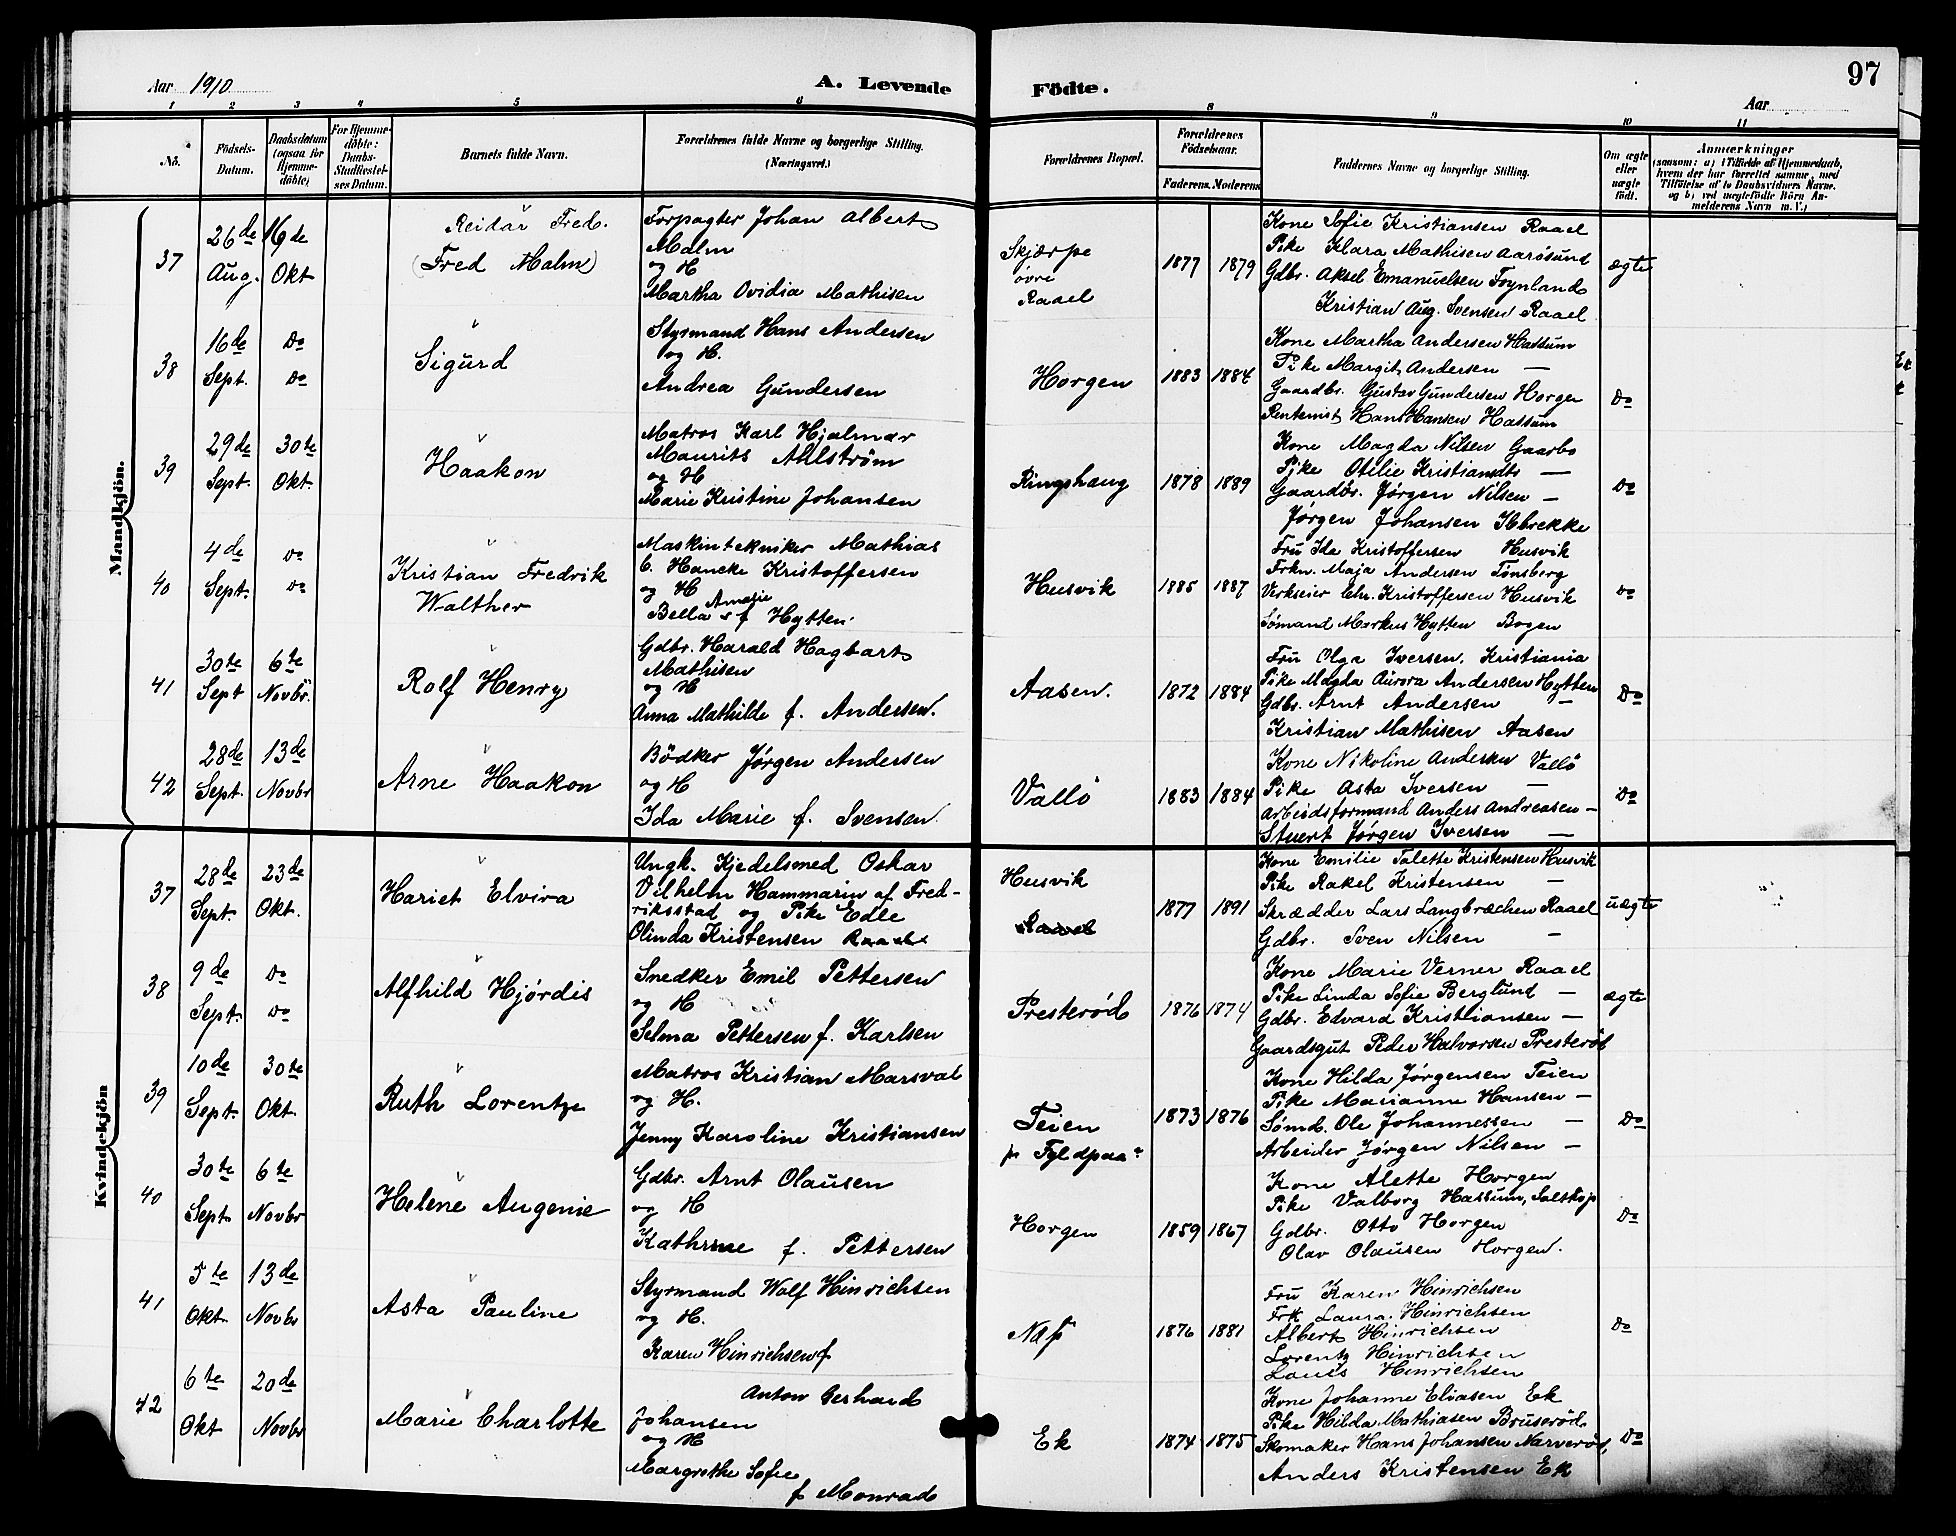 97
Aar 1910
A. Levende Födte.
Aar
1 2 3 4 5 6 8 9 10 11
No.
Födsels-Datum.
Daabsdatum (ogsaa for Hjemme-döbte)
For Hjemme-döbte: Daabs-Stadfæstel-ses Datum.
Barnets fulde Navn.
Forældrenes fulde Navne og borgerlige Stilling.
(Næringsvei.)
Forældrenes Bopæl.
Forældrenes Födselsaar.
Faderens. Moderens.
Faddernes Navne og borgerlige Stilling.
Om ægte eller uægte födt.
Anmærkninger
(saasom: a) i Tilfælde af Hjemmedaab,
hvem der har forrettet samme, med
Tilföielse af to Daabsvidners Navne,
og b) ved uægtefödte Börn An-
melderens Navn m. V.)
Mandkjön.
37
26de Aug.
16de Okt
Reidar Fred.
(Fred Malm)
Forpagter Johan Albert
Malm
og H
Martha Ovidia Mathisen
Skjærpe
övre
Raael
1877 1879
Kone Sofie Kristiansen Raael
Pike Klara Mathisen Aarösund
Gdbr. Aksel Emanuelsen Töynland
Kristian Aug. Svensen Raael
ægte
38
16de Sept.
Do Do
Sigurd
Styrmand Hans Andersen
og H.
Andrea Gundersen
Horgen
1883 1884
Kone Martha Andersen Hassum
Pike Margit Andersen —
Gaardbr. Gustav Gundersen Horgen
Rentenist Hans Hansen Hassum
Do
39
29de Sept.
30te Okt.
Haakon
Matros Karl Hjalmar
Maurits Ahlström
og H
Marie Kristine Johansen
Ringshaug
1878 1889
Kone Magda Nilsen Gaarbo
Pike Otilie Kristiansdtr —
Gaardbr. Jørgen Nilsen —
Jørgen Johansen Ilebrekke
Do
40
4de Sept.
Do Do
Kristian Fredrik
Walther
Maskintekniker Mathias
C. Hancke Kristoffersen
og H
Bella Amalie f Hytten.
Husvik
1885 1887
Fru Ida Kristoffersen Husvik
Frkn. Maja Andersen Tönsberg
Verkseier Chr. Kristoffersen Husvik
Sømand Markus Hytten Bogen
Do
41
30te Sept
6te Novbr.
Rolf Henry
Gdbr. Harald Hagbart
Mathisen
og H
Anna Mathilde f. Andersen.
Aasen.
1872 1884
Fru Olga Iversen. Kristiania
Pike Magda Aurora Andersen Hytten
Gdbr. Arnt Andersen —
Kristian Mathisen Aasen
Do
42
28de Sept.
13de Novbr
Arne Haakon
Bödker Jørgen Andersen
og H
Ida Marie f. Svensen.
Vallö
1883 1884
Kone Nikoline Andersen Vallö
Pike Asta Iversen —
Arbeidsformand Anders Andreasen —
Stuert Jørgen Iversen —
Do
Kvindekjön
37
28de Sept.
23de Okt.
Hariet Elvira
Ungk. Kjedelsmed Oskar
Vilhelm Hammarin af Fred-
riksstad og Pike Edle
Olinda Kristensen Raael
Husvik
Raael
1877 1891
Kone Emilie Talette Kristensen Husvik
Pike Rakel Kristensen —
Skrædder Lars Langbrækken Raael
Gdbr. Sven Nilsen —
uægte
38
9de Sept.
Do Do
Alfhild Hjørdis
Snedker Emil Pettersen
og H
Selma Pettersen f. Karlsen
Presterød
1876 1874
Kone Marie Verner Raael
Pike Linda Sofie Berglund —
Gdbr. Edvard Kristiansen —
Gaardsgut Peder Halvorsen Presterød
ægte
39
10de Sept.
30te Okt.
Ruth Lorentze
Matros Kristian Marsval
og H.
Jenny Karoline Kristiansen
Teien
1873 1876
Kone Hilda Jørgensen Teien
Pike Marianne Hansen —
Sømd. Ole Johannessen —
Arbeider Jørgen Nilsen —
Do
40
30te Sept.
6te Novbr
Helene Augenie
Gdbr. Arnt Olausen
og H
Kathrine f. Pettersen
Horgen
1859 1867
Kone Alette Horgen
Pike Valborg Hassum, Solstop
Gdbr. Otto Horgen
Olav Olausen Horgen.
Do
41
5te Okt.
13de Novbr
Asta Pauline
Styrmand Wolf Hinrichsen
og H.
Karen Hinrichsen f
1876 1881
Fru Karen Hinrichsen
Frk Laura Hinrichsen
Albert Hinrichsen
Lorentz Hinrichsen
Louis Hinrichsen
Do
42
6te Okt
20de Novbr
Marie Charlotte
Anton Gerhard
Johansen
og H
Margrethe Sofie
f Monrad
Ek
1874 1875
Kone Johanne Eliasen Ek
Pike Hilda Mathiasen Bruserød.
Skomaker Hans Johansen Narverød,
Anders Kristensen Ek
Do